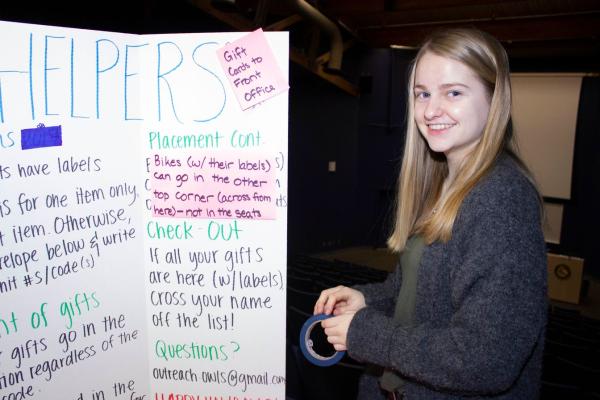 HELPERS
Gift
Cards to
Front
Office
ts have labels
is for one item only,
t item. Otherwise,
elope below & write
nit #s/code(s)
nt of gifts
gifts go in the
tion regardless of the
code.
d in the
Placement Cont.
Bikes (w/their labels)
can go in the other
top corner (across from
here)-not in the seats
Check-Out
If all your gifts
are here (w/labels),
cross your name
off the list!
Questions?
outreachowls@gmail.com